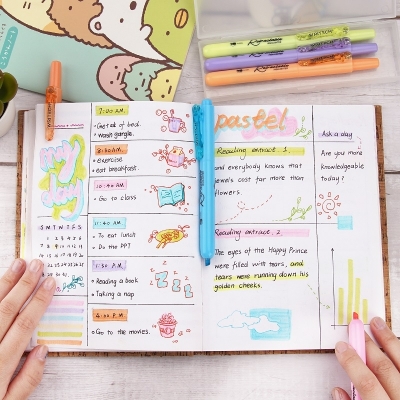 my
day
S M T W T F S
7:00 A.M.
Get out of bed.
wash gargle.
8:30 A.M.
exercise
eat breakfast.
10:40 A.M.
Go to class
11:40 A.M.
To eat lunch
Do the PPT
1:30 A.M.
Reading a book
Taking a nap
4:00 P.M.
Go to the movies.
pastel
Reading extract 1.
and everybody knows that
jewels cost far more than
flowers.
Reading extract 2
The eyes of the Happy Prince
were filled with tears, and
tears were running down his
golden cheeks.
Ask a day
Are you more
knowledgeable
today?